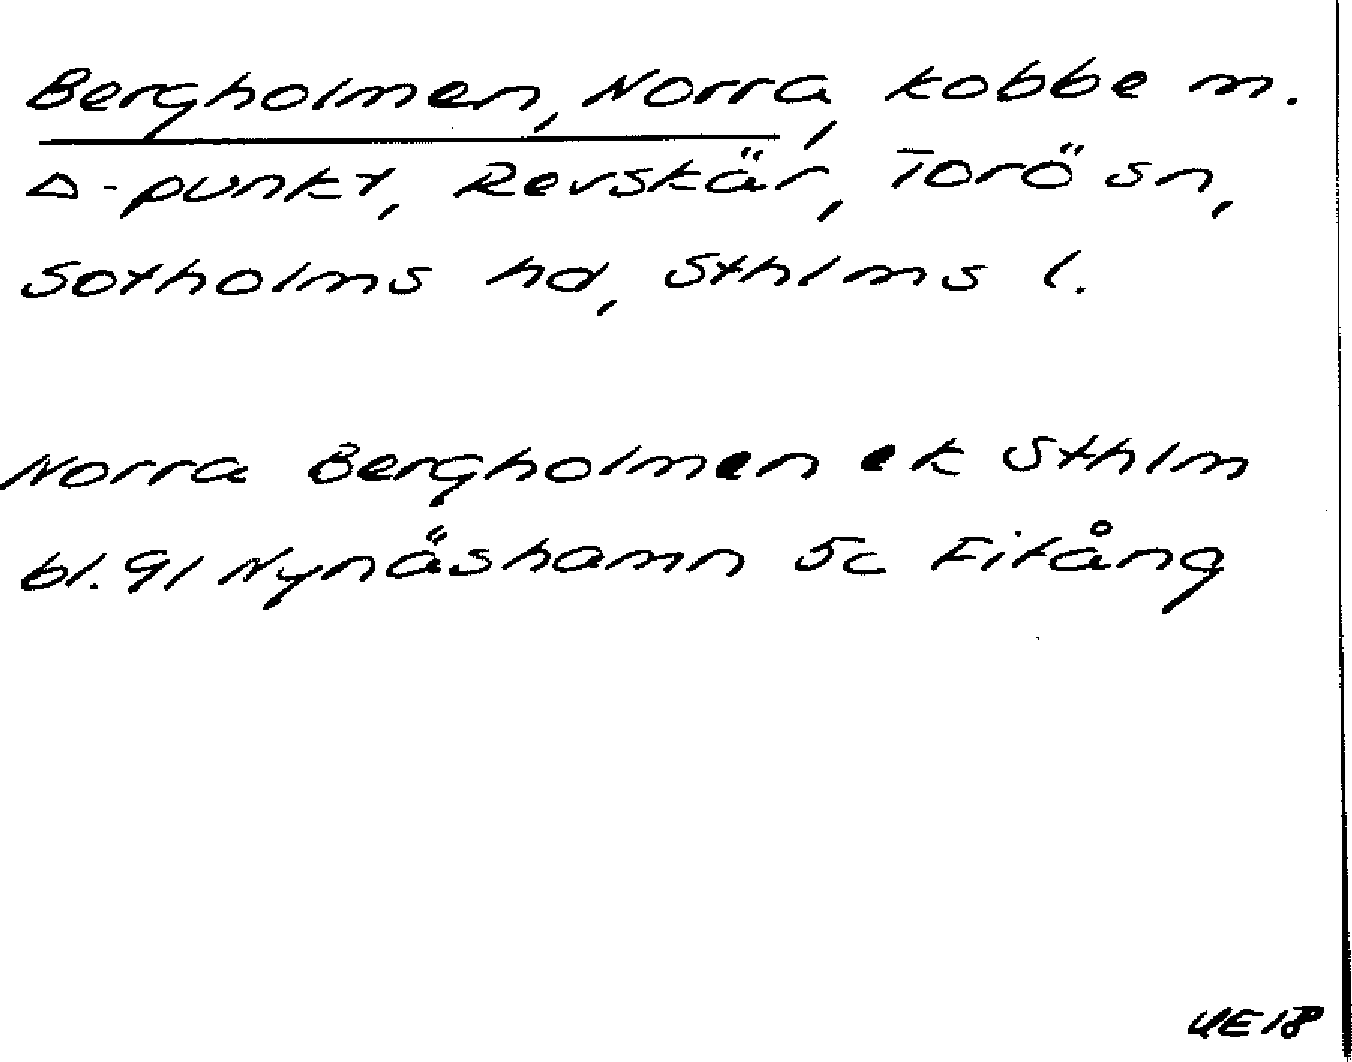 Bergholmen, Norra, kobbe m.
△-punkt, Revskär, Torö sn,
Sotholms hd, Sthlms l.
Norra Bergholmen ek Sthlm
bl. 91 Nynäshamn 5c Fifång
4E18